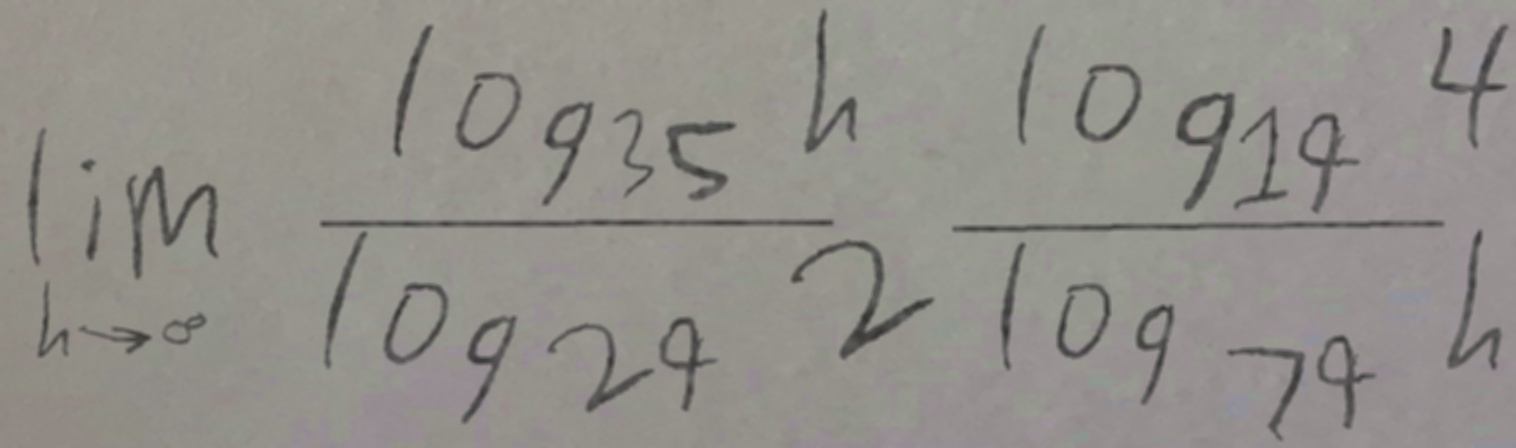 \lim_{h \to \infty} \frac{\log_{35} h}{\log_{24} 2} \frac{\log_{14} 4}{\log_{74} h}